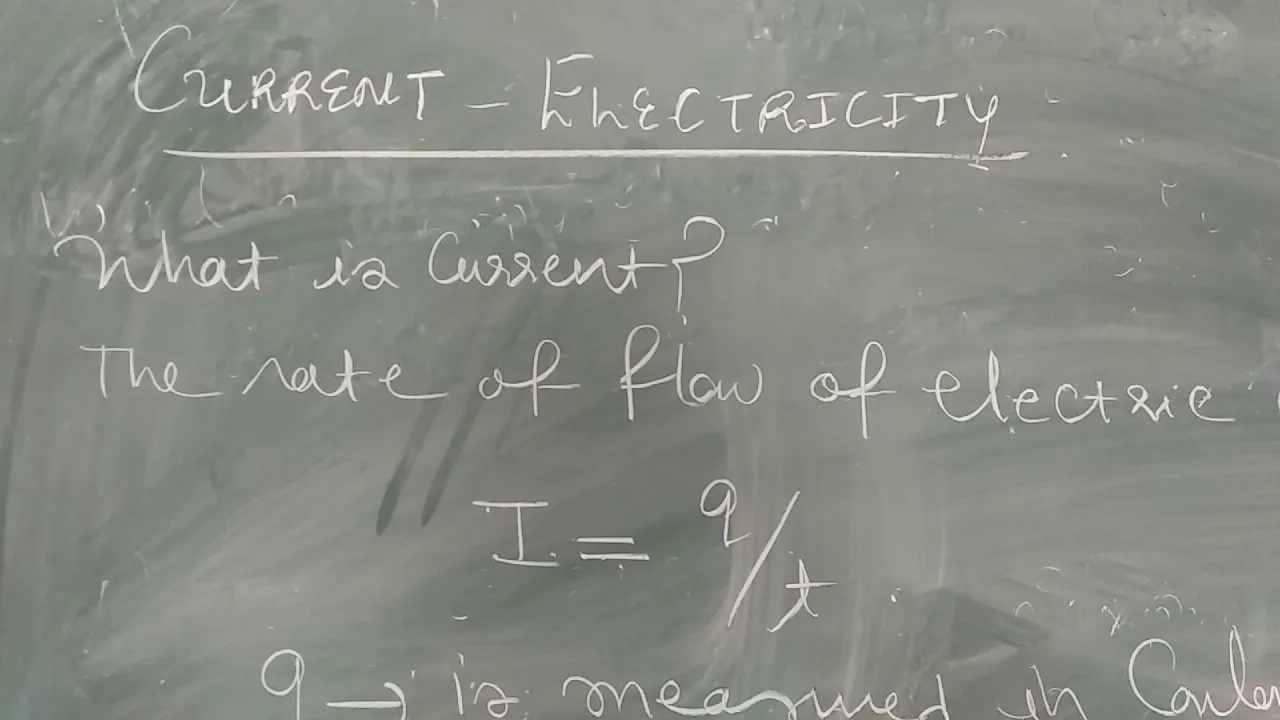 CURRENT - ELECTRICITY
What is Current?
The rate of flow of electric
I = q/t
q → is measured in